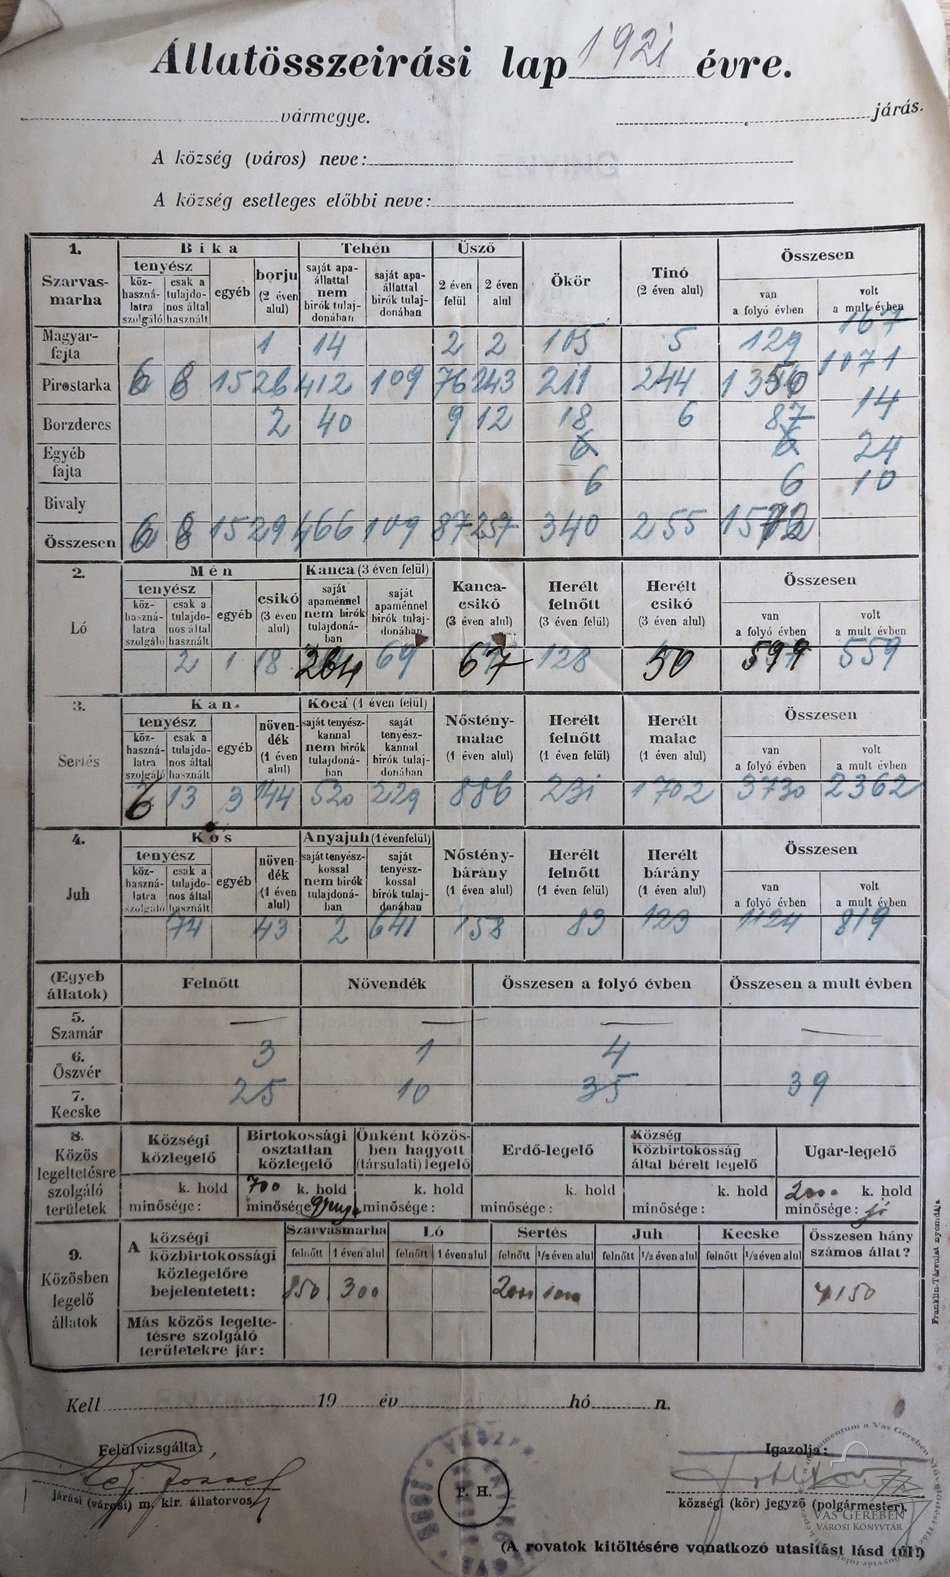 Állatösszeirási lap 1921 évre.
vármegye. járás.
A község (város) neve:
A község esetleges előbbi neve:
1. Szarvasmarha
Bika Tehén Üsző Ökör Tinó (2 éven alul) Összesen
tenyész egyéb borju (2 éven alul) saját apaállattal nem birók tulajdonában saját apaállattal birók tulajdonában 2 éven felül 2 éven alul van a folyó évben volt a mult évben
közhasználatra szolgáló csak a tulajdonos által használt
Magyarfajta 1 14 2 2 105 5 129 167
Pirostarka 6 8 15 26 412 109 76 243 211 244 1350 1071
Borzderes 2 40 9 12 18 6 87 14
Egyéb fajta 6 6 24
Bivaly 6 6 10
Összesen 6 8 15 29 466 109 87 257 340 255 1572
2. Ló
Mén Kanca (3 éven felül) Kancacsikó (3 éven alul) Herélt felnőtt (3 éven felül) Herélt csikó (3 éven alul) Összesen
tenyész egyéb csikó (3 éven alul) saját apaménnel nem birók tulajdonában saját apaménnel birók tulajdonában van a folyó évben volt a mult évben
közhasználatra szolgáló csak a tulajdonos által használt
2 1 18 264 69 67 128 50 599 559
3. Sertés
Kan. Koca (1 éven felül) Nőstény-malac (1 éven alul) Herélt felnőtt (1 éven felül) Herélt malac (1 éven alul) Összesen
tenyész egyéb növendék (1 éven alul) saját tenyészkannal nem birók tulajdonában saját tenyészkannal birók tulajdonában van a folyó évben volt a mult évben
közhasználatra szolgáló csak a tulajdonos által használt
6 13 3 144 520 229 886 231 1702 3730 2362
4. Juh
Kos Anyajuh (1 éven felül) Nőstény-bárány (1 éven alul) Herélt felnőtt (1 éven felül) Herélt bárány (1 éven alul) Összesen
tenyész egyéb növendék (1 éven alul) saját tenyészkossal nem birók tulajdonában saját tenyészkossal birók tulajdonában van a folyó évben volt a mult évben
közhasználatra szolgáló csak a tulajdonos által használt
74 43 2 641 158 83 123 1124 819
(Egyeb állatok) Felnőtt Növendék Összesen a folyó évben Összesen a mult évben
5. Szamár — — — —
6. Öszvér 3 1 4
7. Kecske 25 10 35 39
8. Közös legeltetésre szolgáló területek
Községi közlegelő Birtokossági osztatlan közlegelő Önként közösben hagyott (társulati) legelő Erdő-legelő Község Közbirtokosság által bérelt legelő Ugar-legelő
k. hold 700 k. hold k. hold k. hold k. hold 2000 k. hold
minősége: minősége: minősége: minősége: minősége: minősége: jó
9. Közösben legelő állatok
Szarvasmarha Ló Sertés Juh Kecske Összesen hány számos állat?
felnőtt 1 éven alul felnőtt 1 éven alul felnőtt 1/2 éven alul felnőtt 1/2 éven alul felnőtt 1/2 éven alul
A községi közbirtokossági közlegelőre bejelentetett: 850 300 2000 1000 4150
Más közös legeltetésre szolgáló területekre jár:
Franklin-Társulat nyomdája
Kelt 19 év hó n.
Felülvizsgálta: Igazolja:
járási (városi) m. kir. állatorvos. községi (kör) jegyző (polgármester).
P. H.
VAS GEREBEN
VÁROSI KÖNYVTÁR
(A rovatok kitöltésére vonatkozó utasitást lásd túl!)